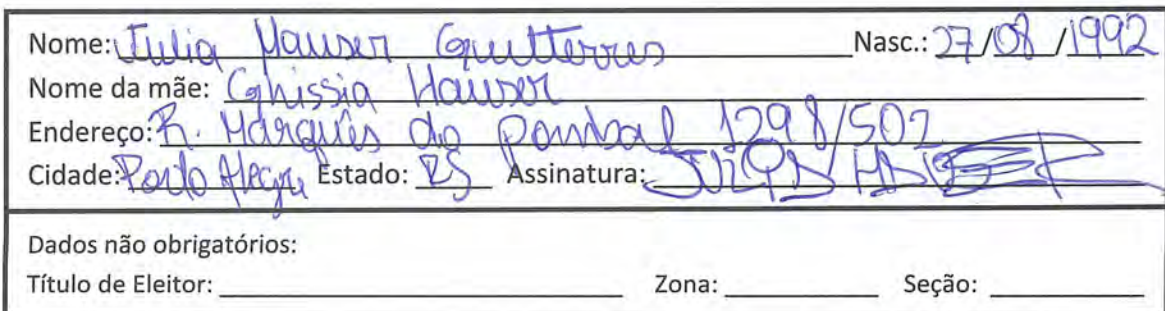 Nome: Julia Hauser Guitterres Nasc.: 27/08/1992
Nome da mãe: Ghissia Hauser
Endereço: R. Marquês do pombal 1298/502
Cidade: Porto Alegre Estado: RS Assinatura:
Dados não obrigatórios:
Título de Eleitor: Zona: Seção: